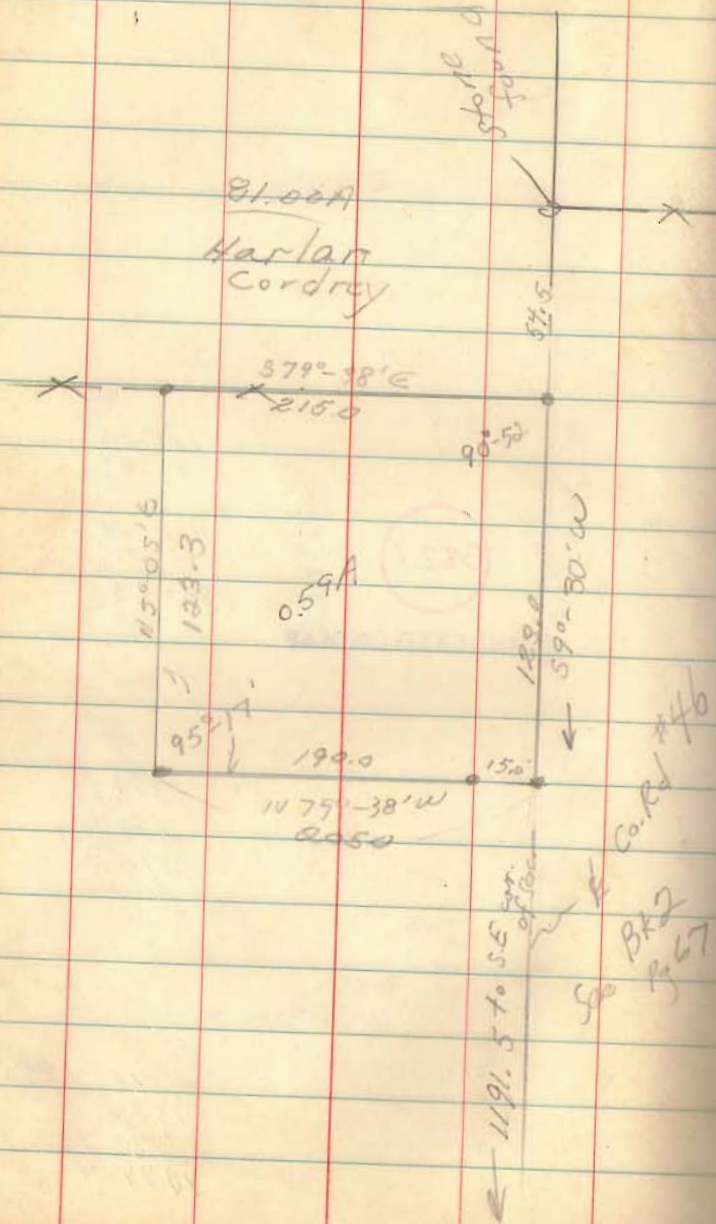 Stone
found
81.00A
Harlan
Cordrey
54.5
S79°-38'E
215.0
90°-52
N5°05'E
123.3
0.59A
129.0
S9°-30'W
95°17'
190.0
15.0
N79°-38'W
2050
Co. Rd #46
1191.5 to S.E cor.
of Sec
See Bk2
Pg 67